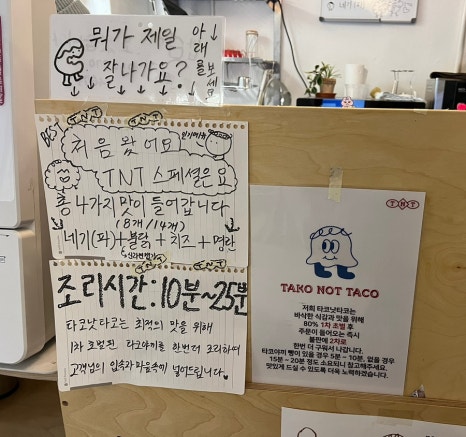 뭐가 제일
잘나가요?
아래를 보세요
BEST
TNT
처음 왔어요
인기메뉴
TNT 스페셜은요
총 4가지 맛이 들어갑니다
(8개/14개)
네기(파)+불닭+치즈+명란
TNT
조리시간:10분~25분
타코낫타코는 최적의 맛을 위해
1차 초벌된 타코야끼를 한번더 조리하여
고객님의 입속과 마음속에 넣어드립니다
TNT
TAKO NOT TACO
저희 타코낫타코는
바삭한 식감과 맛을 위해
80% 1차 초벌 후
주문이 들어오는 즉시
불판에 2차로
한번 더 구워서 나갑니다.
타코야끼 빵이 있을 경우 5분 ~ 10분, 없을 경우
15분 ~ 20분 정도 소요되니 참고해주세요.
맛있게 드실 수 있도록 더욱 노력하겠습니다.